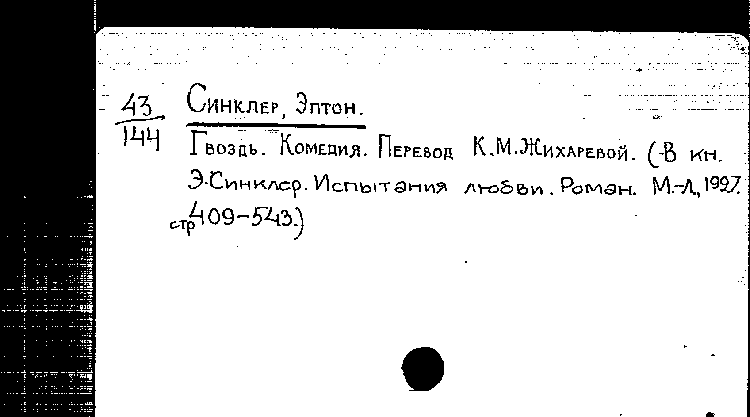 43
144
Синклер, Эптон.
Гвоздь. Комедия. Перевод К.М.Жихаревой. (-В кн.
Э.Синклер. Испытания любви. Роман. М.-Л., 1927.
стр 409-543.)